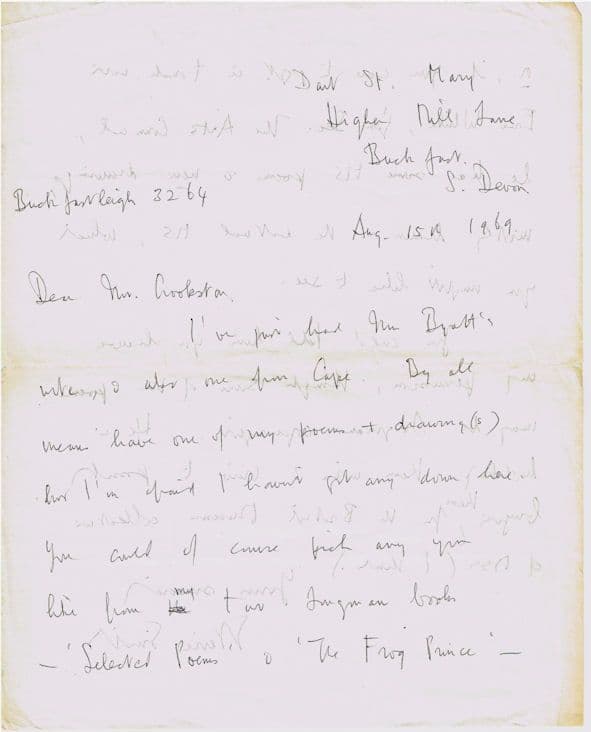 Dart St. Mary
Higher Mill Lane
Buckfast.
S. Devon
Buckfastleigh 3264
Aug. 15th 1969
Dear Mr. Crookston,
I've just had Mr Byatt's
o also one from Cape. By all
means have one of my poems + drawing(s)
but I'm afraid I haven't got any down here
You could of course pick any you
like from my two Longman books
— 'Selected Poems' o 'The Frog Prince' —